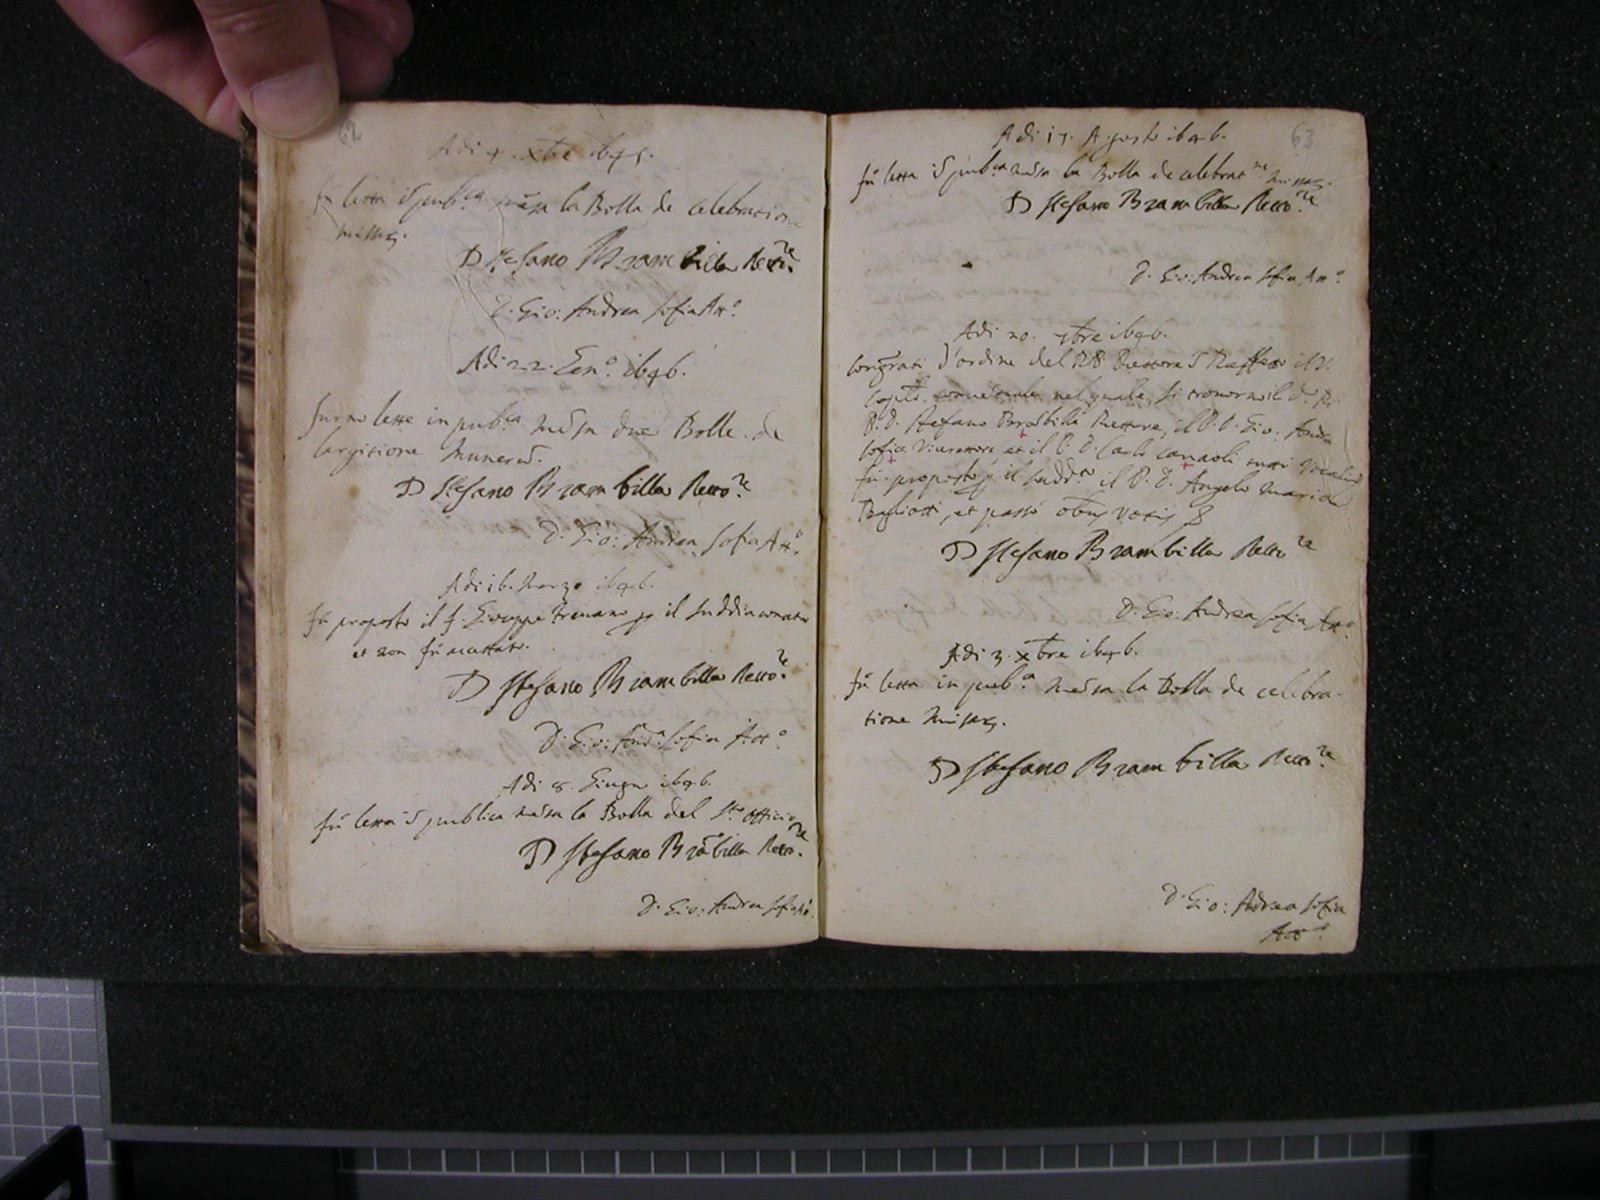 62
Adi 4. Xbre 1645.
fù letta ĩ pub.ca mẽsa la Bolla de celebratione
missaȝ.
D Stefano Brambilla Retto.re
D. Gio: Andrea Sofia Att.o
Adi 22. Gen.o 1646.
furno lette in pub.ca mẽsa due Bolle de
largitione munerũ.
D Stefano Brambilla Retto.re
D. Gio: Andrea Sofia Att.o
Adi 16. Marzo 1646.
fù proposto il f. Gioseppe Trenano ꝑ il suddiaconato
et non fù accettato.
D Stefano Brambilla Retto.re
D. Gio: And.a Sofia Att.o
Adi 8. Giugn 1646.
fù letta ĩ publica mẽsa la Bolla del S.to Officio
D Stefano Brãbilla Retto.re
D. Gio: Andrea Sofia Att.o
63
Adi 17. Agosto 1646.
fù letta ĩ pub.ca mẽsa la Bolla de celebrat.ne missaȝ.
D Stefano Brambilla Retto.re
D. Gio: Andrea Sofia Att.o
Adi 20. 7bre 1646.
Congrati d'ordine del
Capitolo conventuale nel quale si trovorno il
P. D. Stefano Brãbilla Rettore, il P. D. Gio: Andrea
Sofia Vicerettore, et il P. D. Carlo tutti Vocali
fù proposto ꝑ il sudd.to il P. D. Angelo Maria
et passò oĩbus votis
D Stefano Brambilla Retto.re
D. Gio: Andrea Sofia Att.o
Adi 3. Xbre 1646.
fù letta in pub.ca mẽsa la Bolla de celebra-
tione missaȝ.
D Stefano Brambilla Retto.re
D. Gio: Andrea Sofia
Att.o